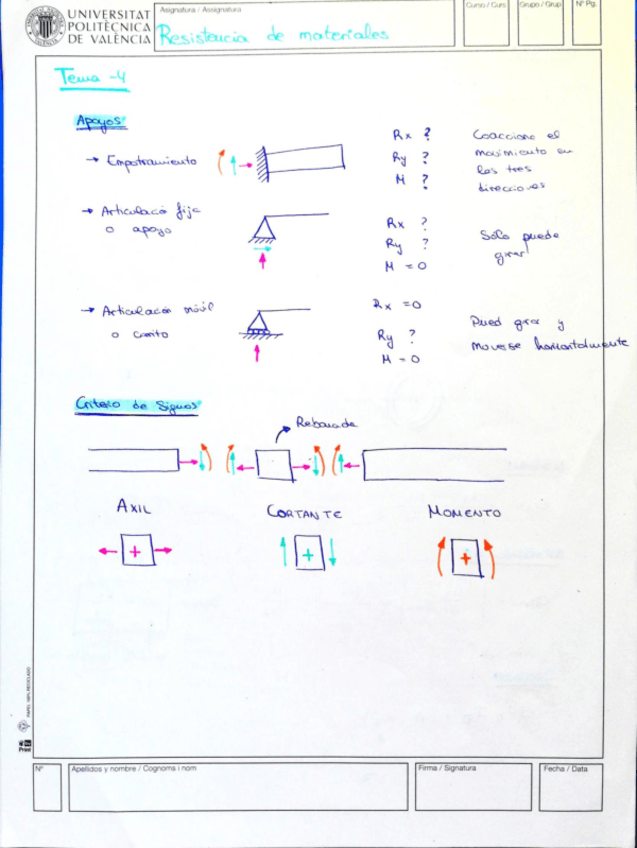 UNIVERSITAT
POLITÈCNICA
DE VALÈNCIA
Asignatura / Assignatura
Curso / Curs
Grupo / Grup
Nº Pg.
Resistencia de materiales
Tema -4
Apoyos:
→ Empotramiento
Rx ?
Ry ?
M ?
Coacciona el
movimiento en
las tres
direcciones
→ Articulació fija
o apoyo
Rx ?
Ry ?
M = 0
Sólo puede
girar
→ Articulación móvil
o carrito
Rx = 0
Ry ?
M = 0
Pued girar y
moverse horizontalmente
Criterio de Signos:
Rebanada
AXIL
CORTANTE
MOMENTO
+
+
+
PAPEL 100% RECICLADO
Nº
Apellidos y nombre / Cognoms i nom
Firma / Signatura
Fecha / Data